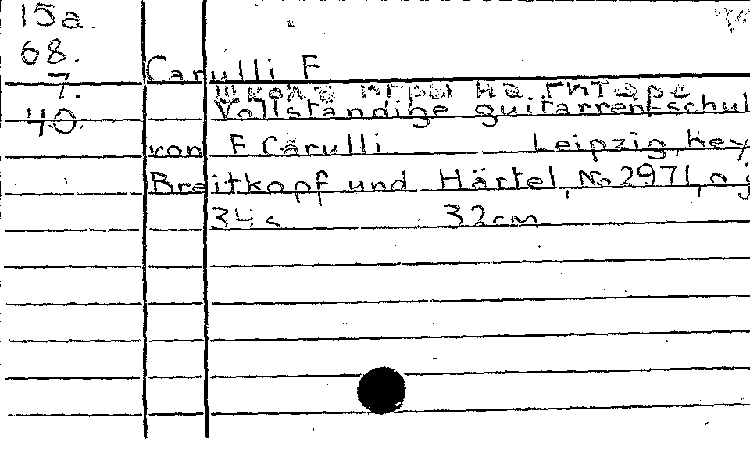 15a.
68.
7.
40.
Carulli F
Школа игры на гитаре
Vollständige guitarrenschul
von F Carulli Leipzig, bey
Breitkopf und Härtel, No 2971, o j
34s 32cm